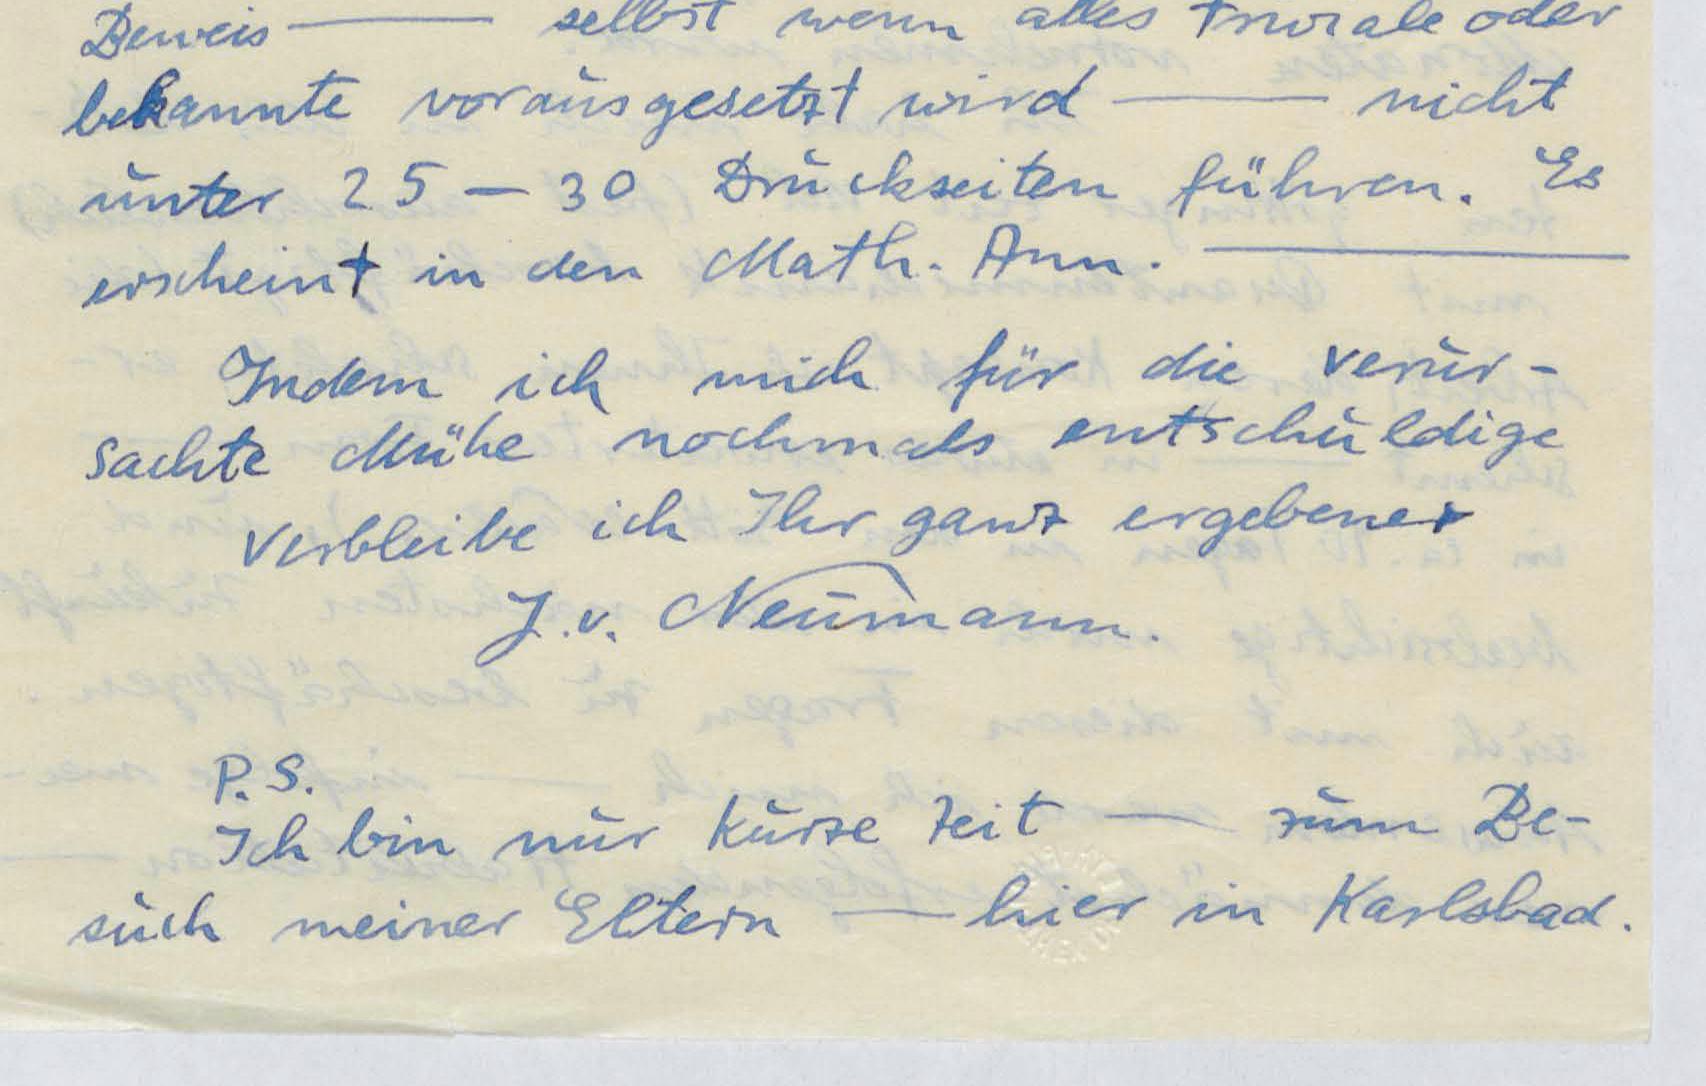 Beweis — selbst wenn alles Triviale oder
bekannte vorausgesetzt wird — nicht
unter 25 — 30 Druckseiten führen. Es
erscheint in den Math. Ann. —
Indem ich mich für die verur-
sachte Mühe nochmals entschuldige
verbleibe ich Ihr ganz ergebener
J. v. Neumann.
P. S.
Ich bin nur kurze Zeit — zum Be-
such meiner Eltern — hier in Karlsbad.